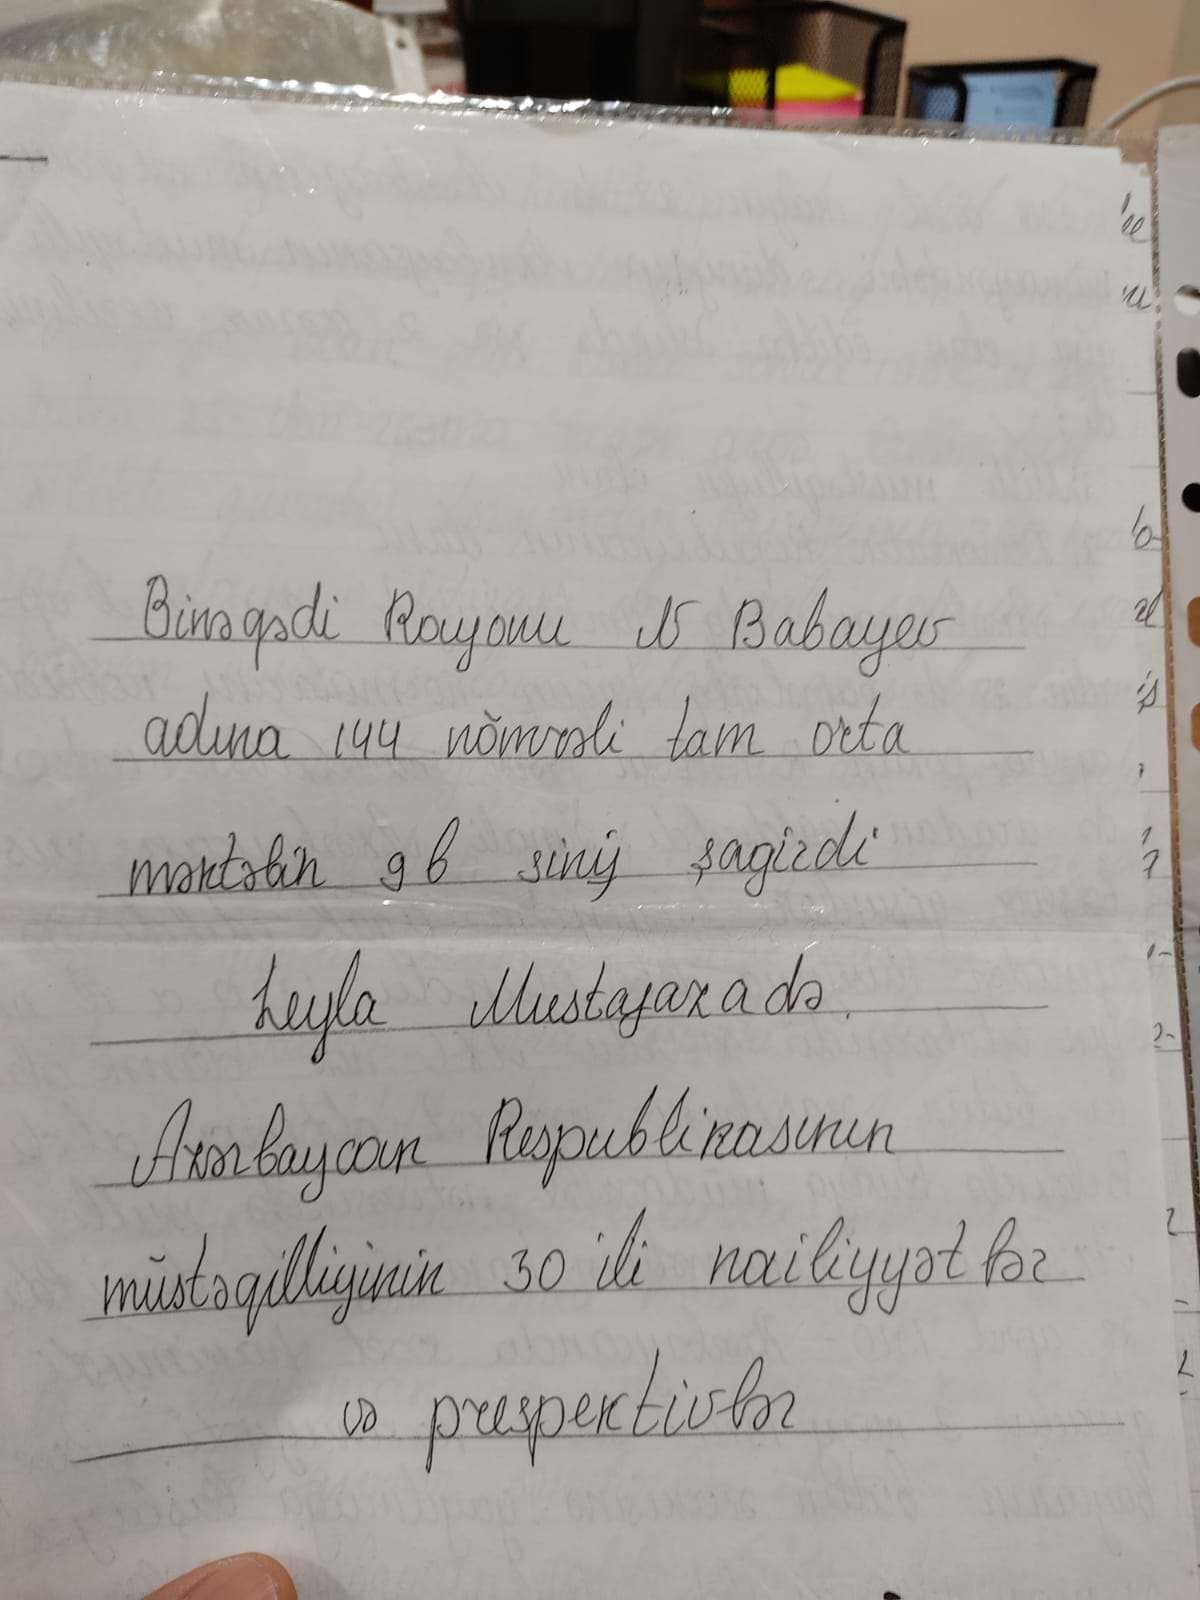 Binəqədi Rayonu N Babayev
adına 144 nömrəli tam orta
məktəbin 9 b sinif şagirdi
Leyla Mustafazadə.
Azərbaycan Respublikasının
müstəqilliyinin 30 ili nailiyyətlər
və prespektivlər